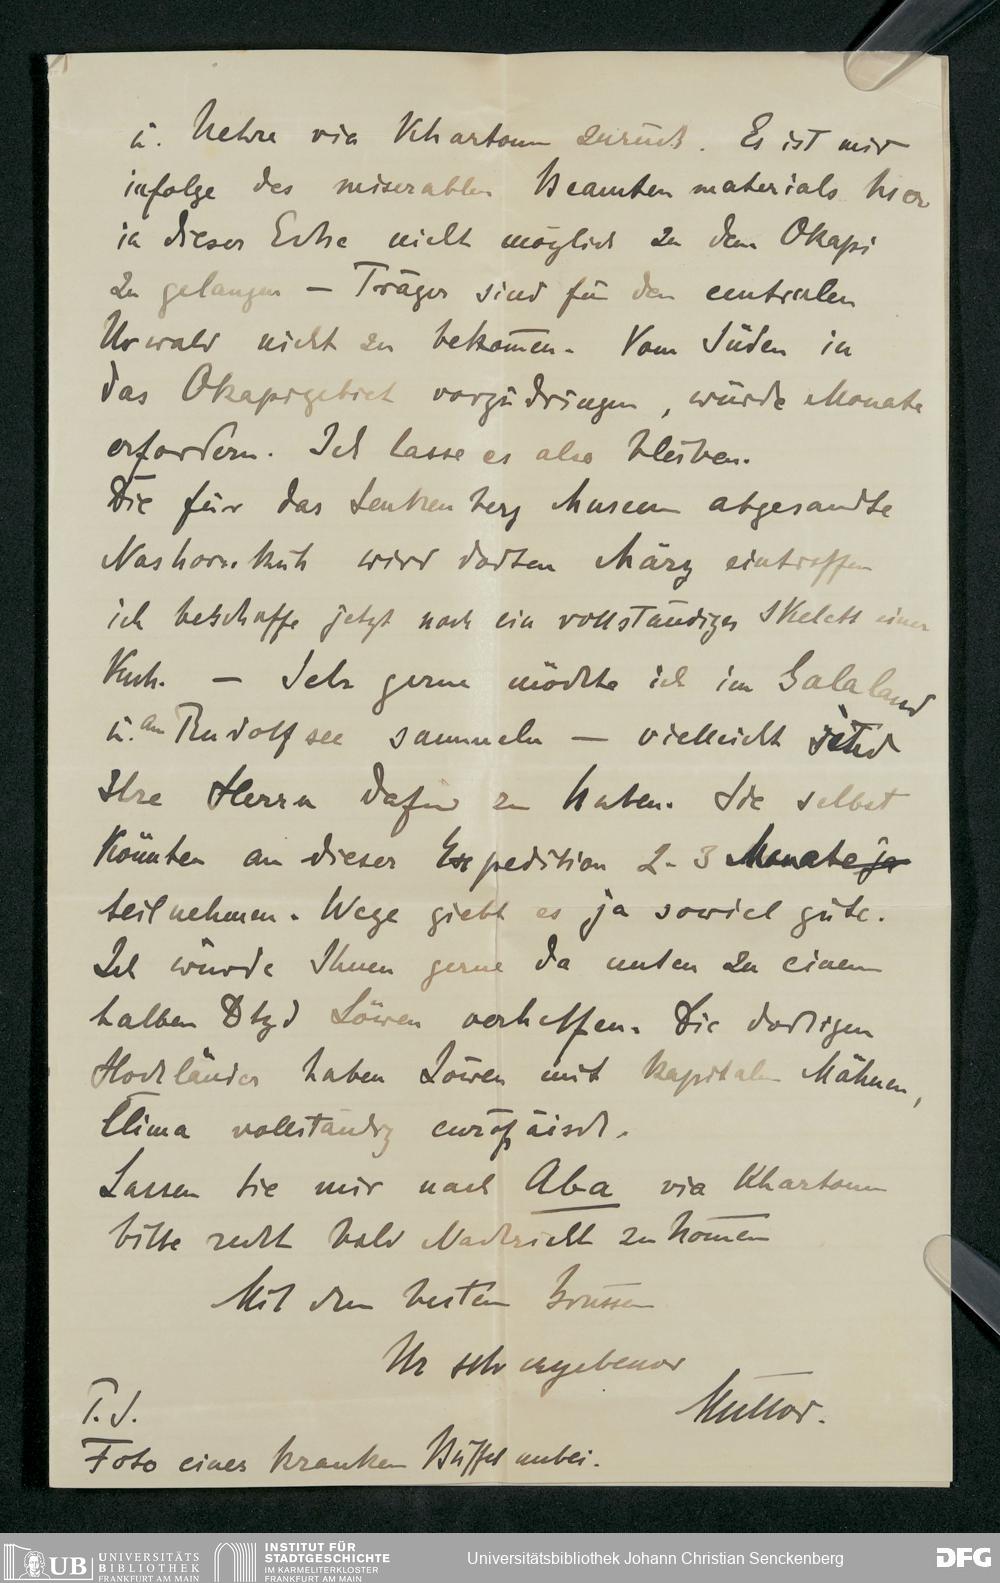 u. kehre via Khartoum zurück. Es ist mir
infolge des miserablen Beamtenmaterials hier
in dieser Ecke nicht möglich zu dem Okapi
zu gelangen — Träger sind für den centralen
Urwald nicht zu bekom̄en. Vom Süden in
das Okapigebiet vorzudringen, würde Monate
erfordern. Ich lasse es also bleiben.
Die für das Senkenberg Museum abgesandte
Nashornkuh wird dorten März eintreffen
ich beschaffe jetzt noch ein vollständiges Skelett einer
Kuh. — Sehr gerne möchte ich im Galaland
u. am Rudolfsee sammeln — vielleicht sind
Ihre Herrn dafür zu haben. Sie selbst
könnten an dieser Expedition 2-3 Monate ja
teilnehmen. Wege giebt es ja soviel gute.
Ich würde Ihnen gerne da unten zu einem
halben Dtzd Löwen verhelfen. Die dortigen
Hochländer haben Löwen mit kapitalen Mähnen,
Clima vollständig europäisch.
Lassen Sie mir nach Aba via Khartoum
bitte recht bald Nachricht zukom̄en
Mit den besten Grüssen
Ihr sehr ergebener

P.S.
Foto eines kranken Büffel anbei.
UB UNIVERSITÄTS
BIBLIOTHEK
FRANKFURT AM MAIN
INSTITUT FÜR
STADTGESCHICHTE
IM KARMELITERKLOSTER
FRANKFURT AM MAIN
Universitätsbibliothek Johann Christian Senckenberg
DFG